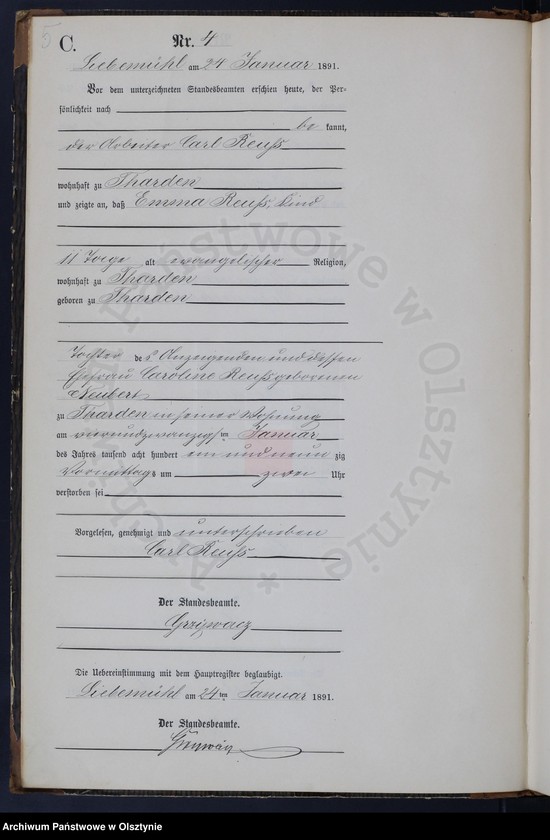 5
C.
Nr. 4
Liebemühl am 24 Januar 1891.
Vor dem unterzeichneten Standesbeamten erschien heute, der Per-
sönlichkeit nach
be kannt,
der Arbeiter Carl Reuß
wohnhaft zu Tharden
und zeigte an, daß Emma Reuß, Kind
11 Tage alt evangelischer Religion,
wohnhaft zu Tharden
geboren zu Tharden
Tochter des Anzeigenden und dessen
Ehefrau Caroline Reuß geborenen
Neubert
zu Tharden in seiner Wohnung
am vierundzwanzigten Januar
des Jahres tausend acht hundert ein und neun zig
Vormittags um zwei Uhr
verstorben sei
Vorgelesen, genehmigt und unterschrieben
Carl Reuß
Der Standesbeamte.
Die Uebereinstimmung mit dem Hauptregister beglaubigt.
Liebemühl am 24ten Januar 1891.
Der Standesbeamte.
Archiwum Państwowe w Olsztynie
Archiwum Państwowe w Olsztynie *